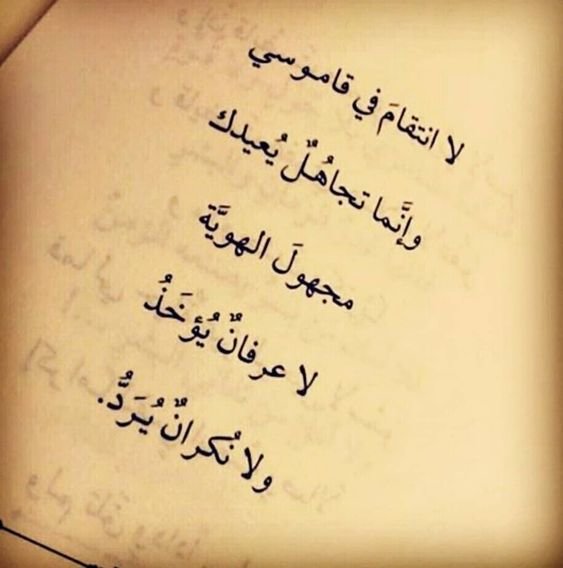 لا انتقامَ في قاموسي
وإنَّما تجاهُلٌ يُعيدك
مجهولَ الهويَّة
لا عرفانٌ يُؤخَذُ
ولا نُكرانٌ يُرَدُّ.